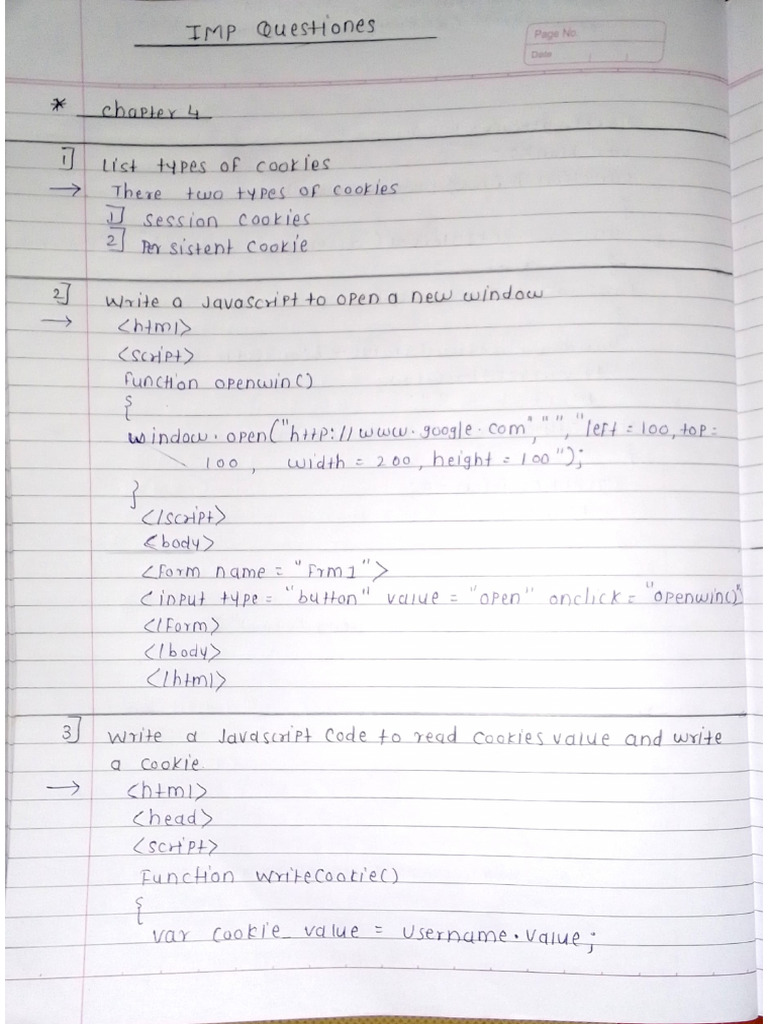 IMP Questiones
Page No
Date
* Chapter 4
1] List types of cookies
→ There two types of cookies
1] Session cookies
2] Persistent cookie
2] Write a Javascript to open a new window
→ <html>
<script>
Function openwin()
{
window.open("http://www.google.com","","left=100,top=
100, width=200,height=100");
}
</script>
<body>
<form name = "Frm1">
<input type= "button" value = "open" onclick = "openwin()"
</form>
</body>
</html>
3] Write a Javascript code to read cookies value and write
a cookie.
→ <html>
<head>
<script>
Function writecookie()
{
var cookie_value = username.value;